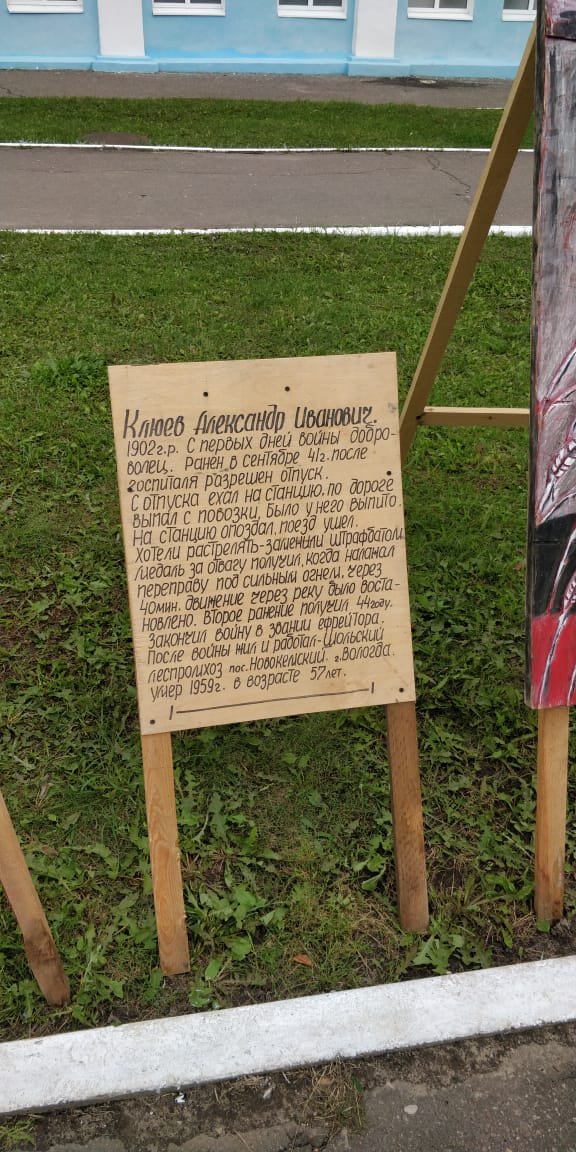 Клюев Александр Иванович.
1902г.р. С первых дней войны добро-
волец. Ранен в сентябре 41г. после
госпиталя разрешен отпуск.
С отпуска ехал на станцию, по дороге
выпал с повозки, было у него выпито.
На станцию опоздал, поезд ушел.
Хотели растрелять-заменили штрафбатом
медаль за отвагу получил, когда налажал
переправу под сильным огнем, через
40мин. движение через реку было воста-
новлено. Второе ранение получил 44году.
Закончил войну в звании ефрейтора.
После войны жил и работал-Шольский
леспромхоз пос. Новокемский. г.Вологда.
умер 1959г. в возрасте 57лет.